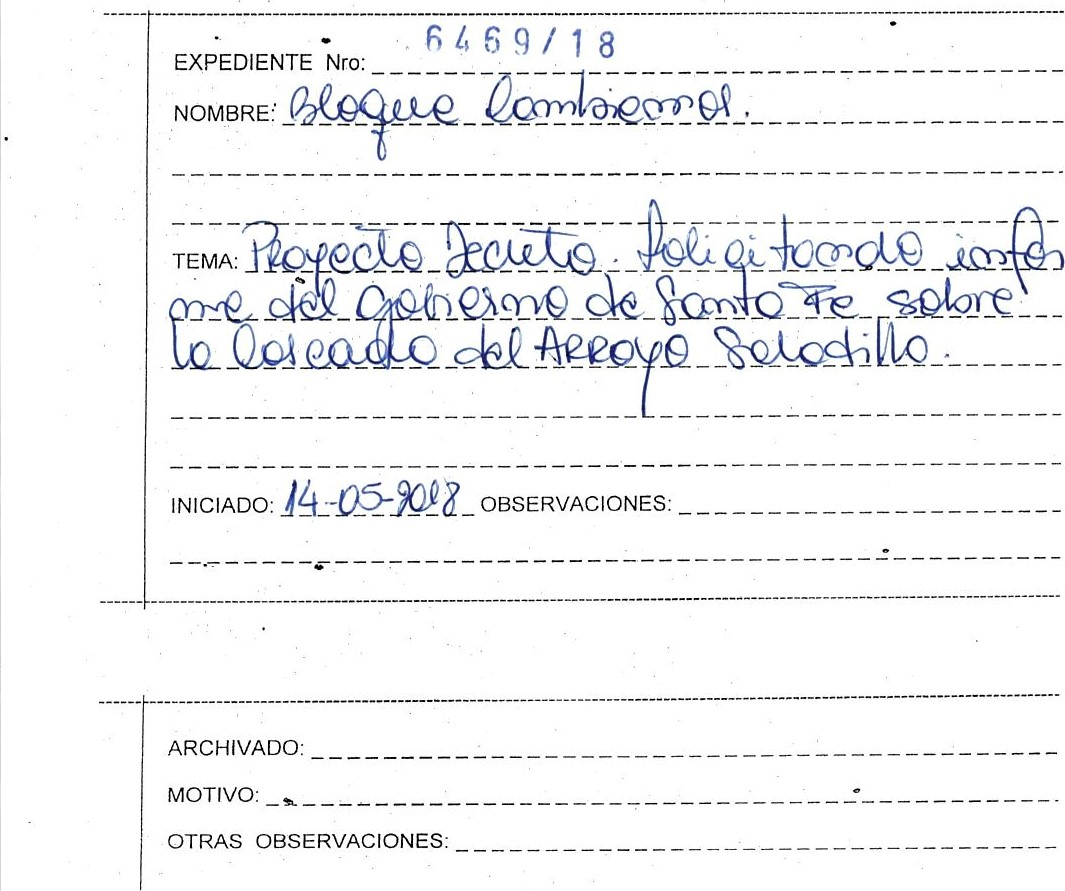 EXPEDIENTE Nro: 6469/18
NOMBRE: Bloque Cambiemos.
TEMA: Proyecto Decreto. Solicitando infor
me del Gobierno de Santa Fe sobre
la Cascada del ARROYO Saladillo.
INICIADO: 14-05-2018 OBSERVACIONES:
ARCHIVADO:
MOTIVO:
OTRAS OBSERVACIONES: